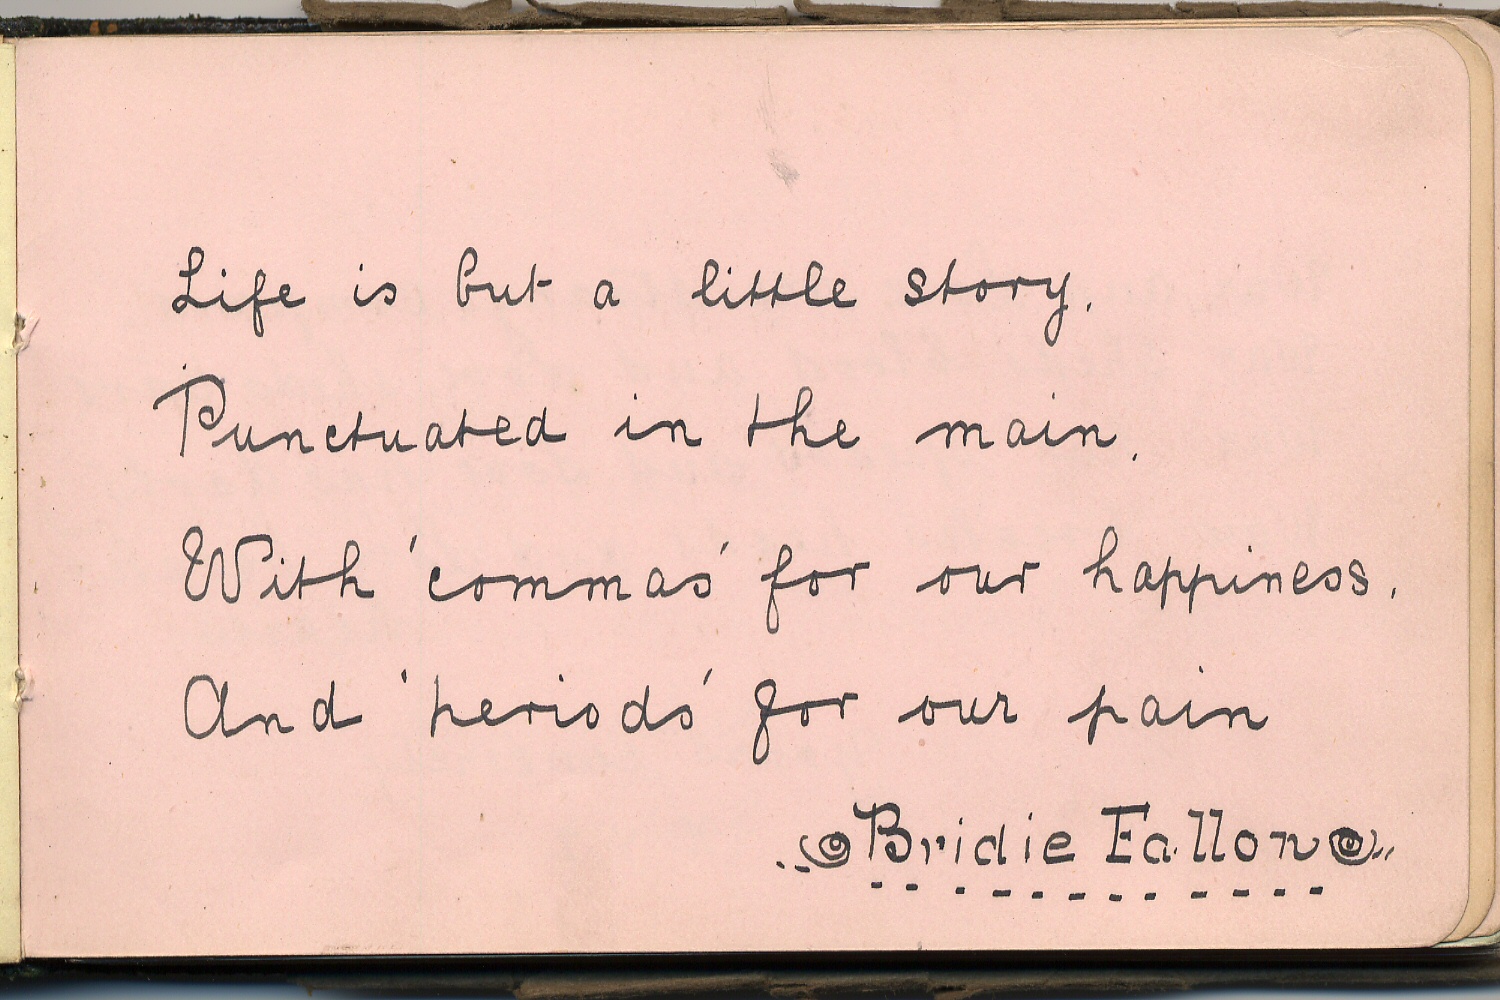 Life is but a little story,
Punctuated in the main,
With 'commas' for our happiness,
And 'periods' for our pain
Bridie Fallon